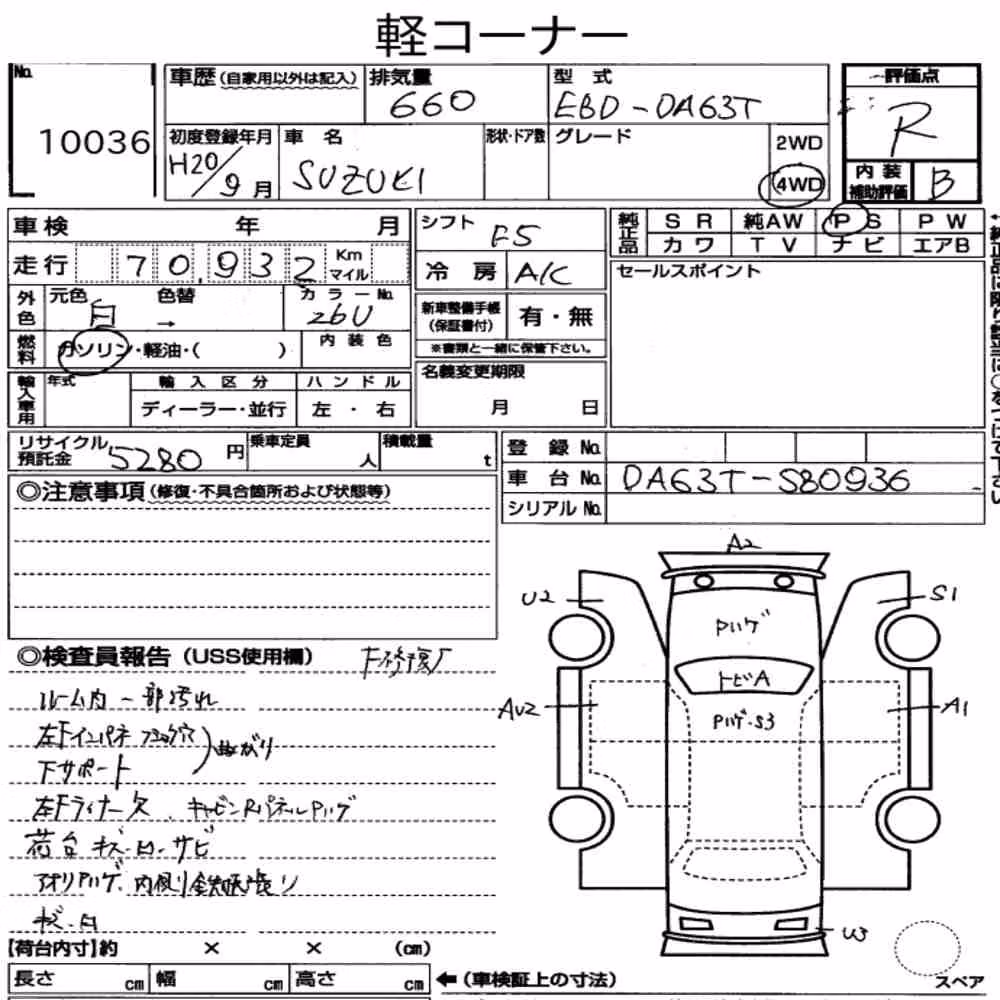 軽コーナー
No. 10036
車歴 (自家用以外は記入)
排気量 660
型式 EBD-DA63T
評価点 R
初度登録年月 H20/9月
車名 SUZUKI
形状・ドア数
グレード
2WD
4WD
内装補助評価 B
車検 年 月
走行 70,932 Km マイル
外色 元色 白 色替 → カラーNo. 26U
燃料 ガソリン・軽油・( )
内装色
輸入車用 年式 輸入区分 ハンドル
ディーラー・並行 左・右
シフト F5
冷房 A/C
新車整備手帳 (保証書付) 有・無
※書類と一緒に保管下さい。
名義変更期限
月 日
純正品 SR 純AW PS PW
カワ TV ナビ エアB
セールスポイント
リサイクル預託金 5280円
乗車定員 人
積載量 t
登録No.
車台No. DA63T-580936
シリアルNo.
◎注意事項 (修復・不具合箇所および状態等)
◎検査員報告 (USS使用欄)
ルーム内一部汚れ
左Fインパネ
下サポート
曲がり
左Fライナー欠 キャビンRパネルPハゲ
荷台キズ・凹・サビ
アオリハゲ 内側
キズ・凹
A2
U2
S1
Pハゲ
トビA
AU2
Pハゲ・S3
A1
U3
【荷台内寸】約 × × (cm)
長さ cm 幅 cm 高さ cm
← (車検証上の寸法)
スペア